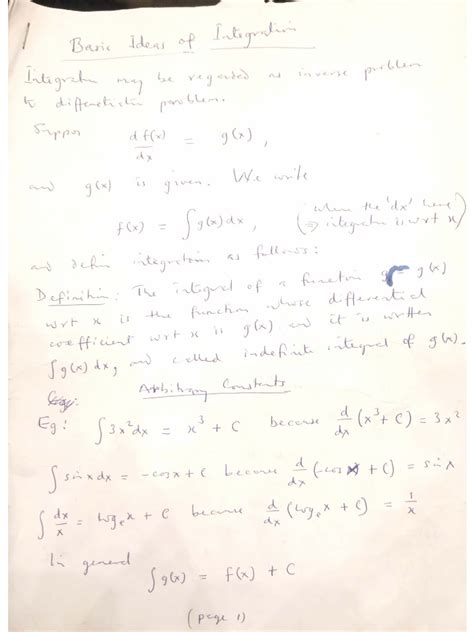 Basic Ideas of Integration
Integratn may be regarded as inverse problem
to differentiatn problem.
Suppos
df(x)/dx = g(x),
and g(x) is given. We write
f(x) = ∫ g(x) dx, (where the 'dx' here
⇒ integratn is wrt x)
and defin integration as follows:
Definition: The integral of a function g(x)
wrt x is the function whose differential
coefficient wrt x is g(x) and it is written
∫ g(x) dx, and called indefinite integral of g(x).
Arbitrary Constants
Eg: ∫ 3x² dx = x³ + C because d/dx (x³ + C) = 3x²
∫ sin x dx = -cos x + C because d/dx (-cos x + C) = sin x
∫ dx/x = logₑ x + C because d/dx (logₑ x + C) = 1/x
In general
∫ g(x) = f(x) + C
(page 1)